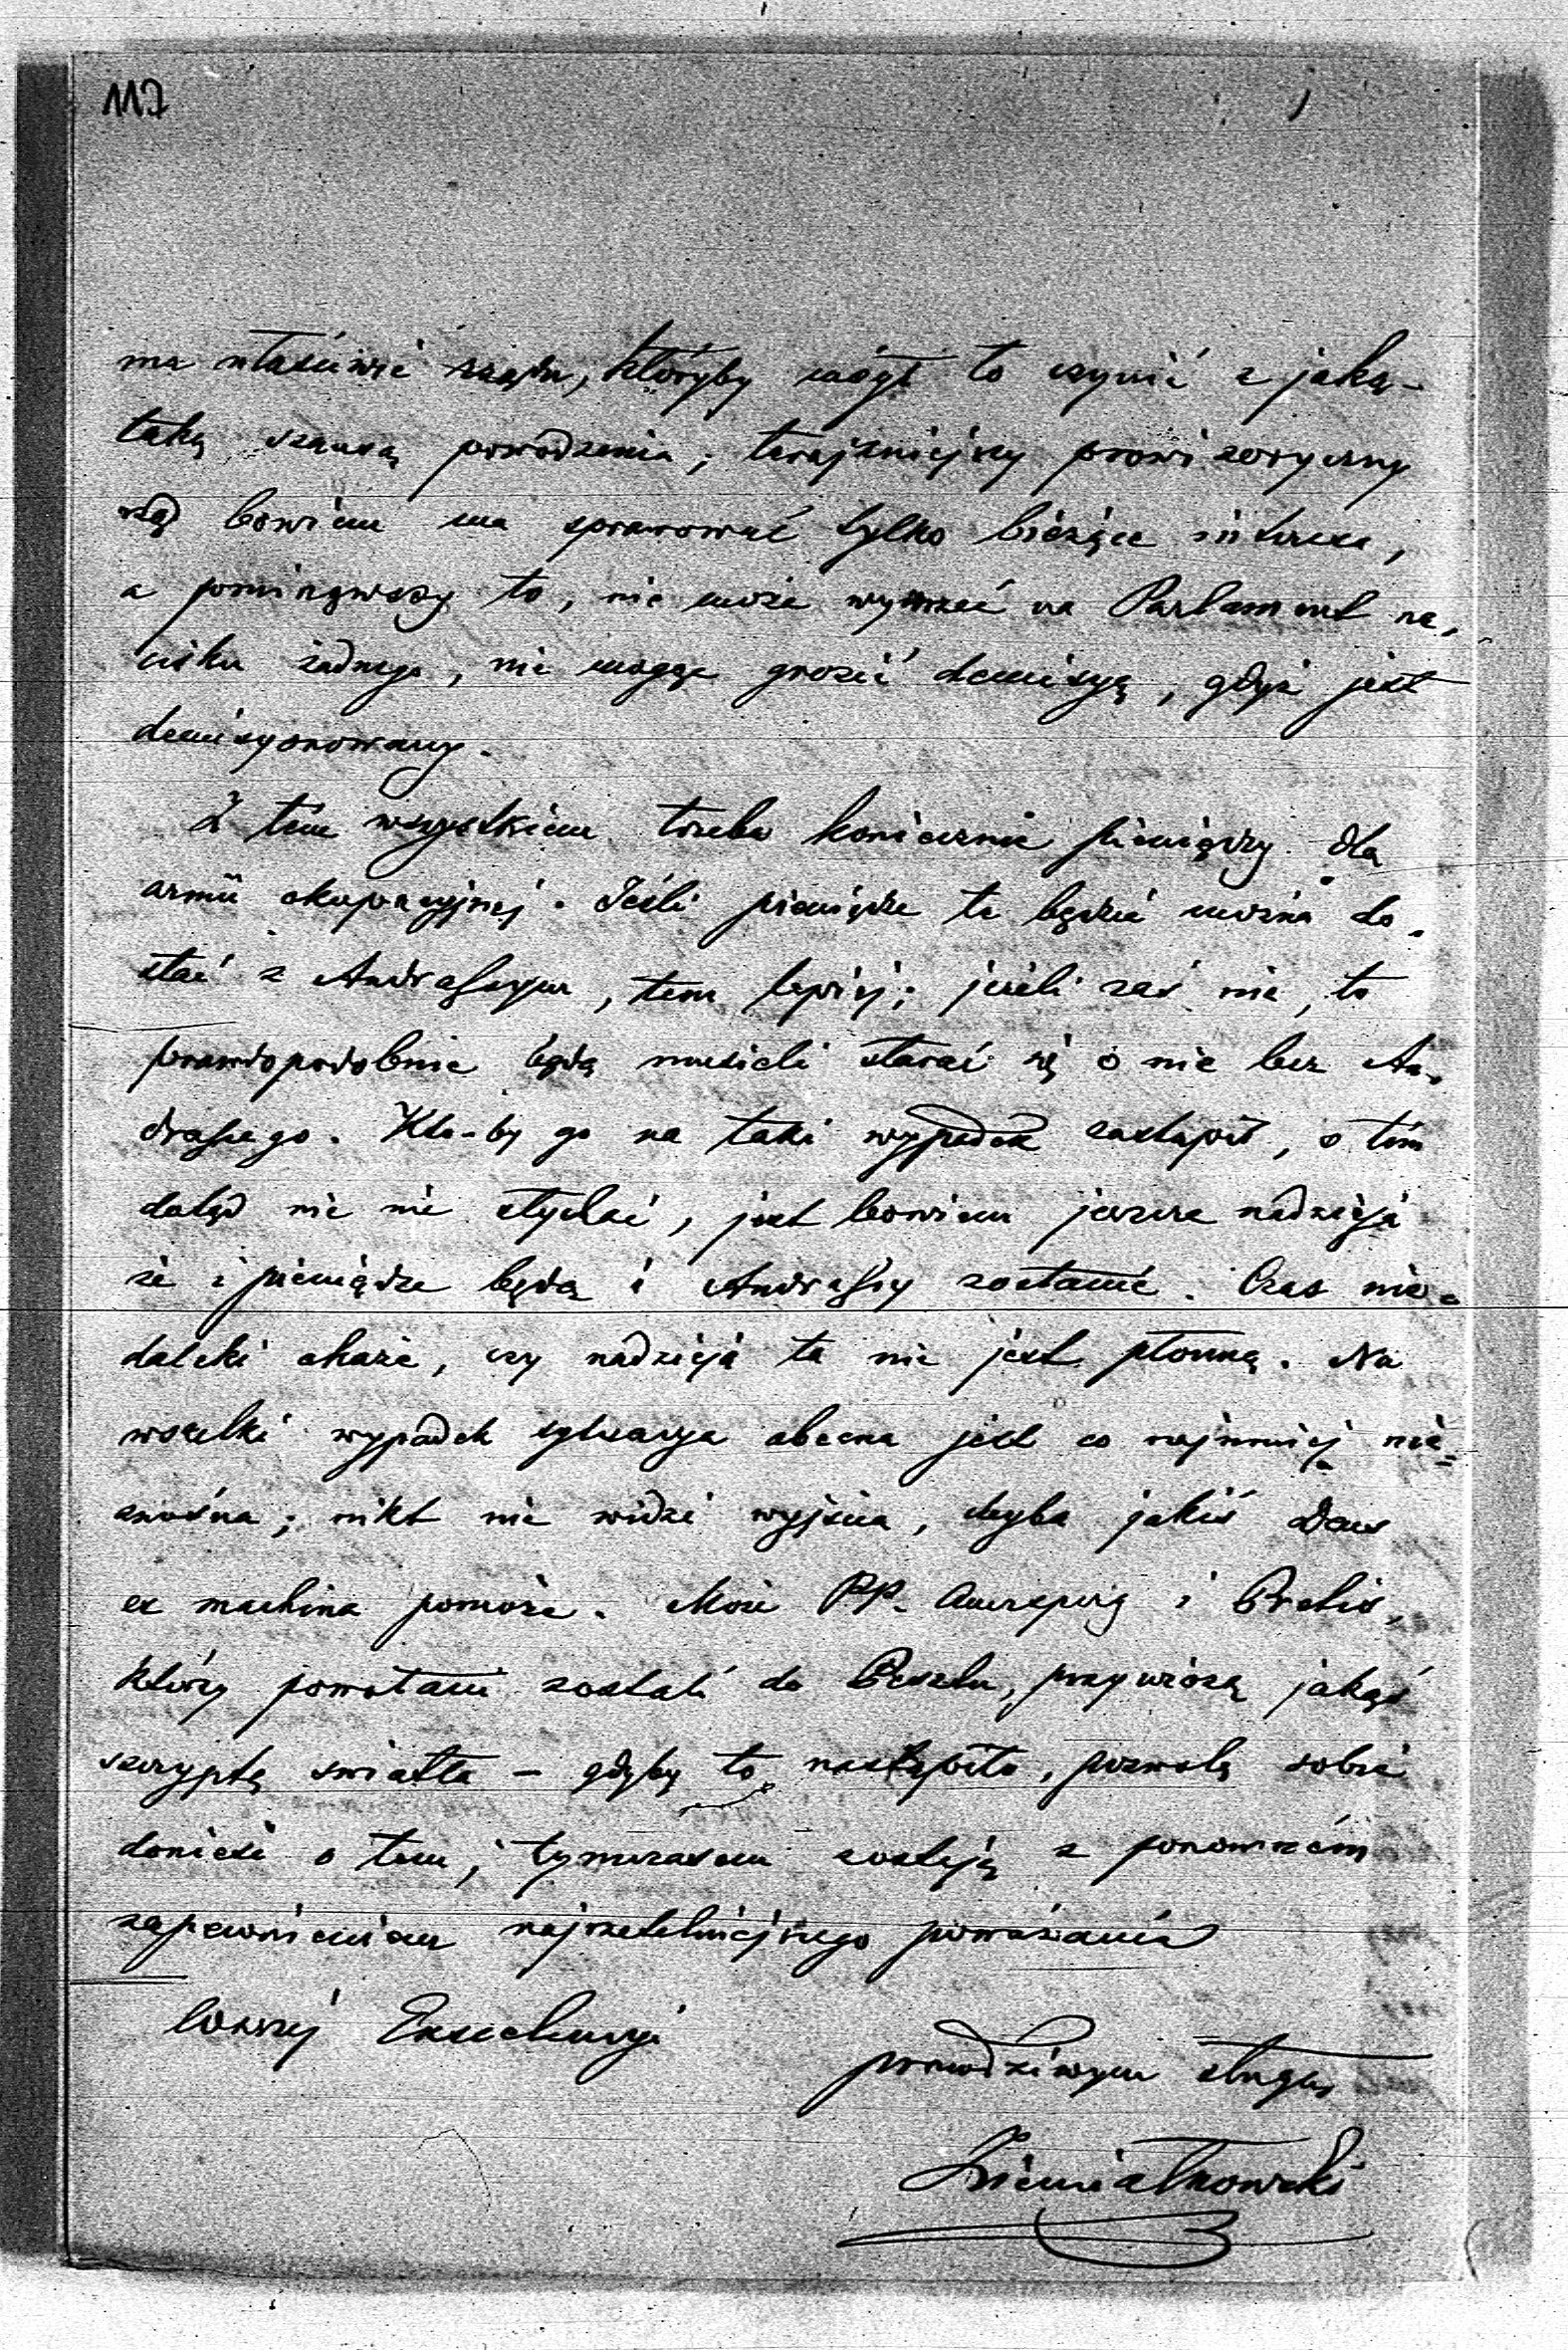 117
ma właściwie rządu, któryby mógł to czynić z jaką-
taką szansą powodzenia; terajźniejszy prowizoryczny
rząd bowiem ma sprawować tylko bieżące interesa,
a pominąwszy to, nie może wywrzeć na Parlament na-
cisku żadnego, nie mogąc grozić demisyą, gdyż jest
demisyonowany.
Z tém wszystkiem trzeba koniecznie pieniędzy dla
armii okupacyjnej. Jeśli pieniądze te będzie można do-
stać z Andrassym, tem lepiej; jeżeli zaś nie, to
prawdopodobnie będą musieli starać się o nie bez An-
drassego. Kto-by go na taki wypadek zastąpił, o tém
dotąd nic nie słychać, jest bowiem jeszcze nadzieja
że i pieniądze będą i Andrassy zostanie. Czas nie-
daleki okaże, czy nadzieja ta nie jest płonną. Na
wszelki wypadek sytuacya obecna jest co najmniej nie-
znośna; nikt nie widzi wyjścia, chyba jakiś Deus
ex machina pomoże. Może PP. Auersperg i Pretis,
którzy powołani zostali do Pesztu, przywiozą jakąś
szczyptę światła – gdyby to nastąpiło, pozwolę sobie
donieść o tem; tymczasem zostaję z ponowném
zapewnieniem najrzetelniejszego poważania
Waszej Excelencyi
prawdziwym sługą
Ziemiałkowski